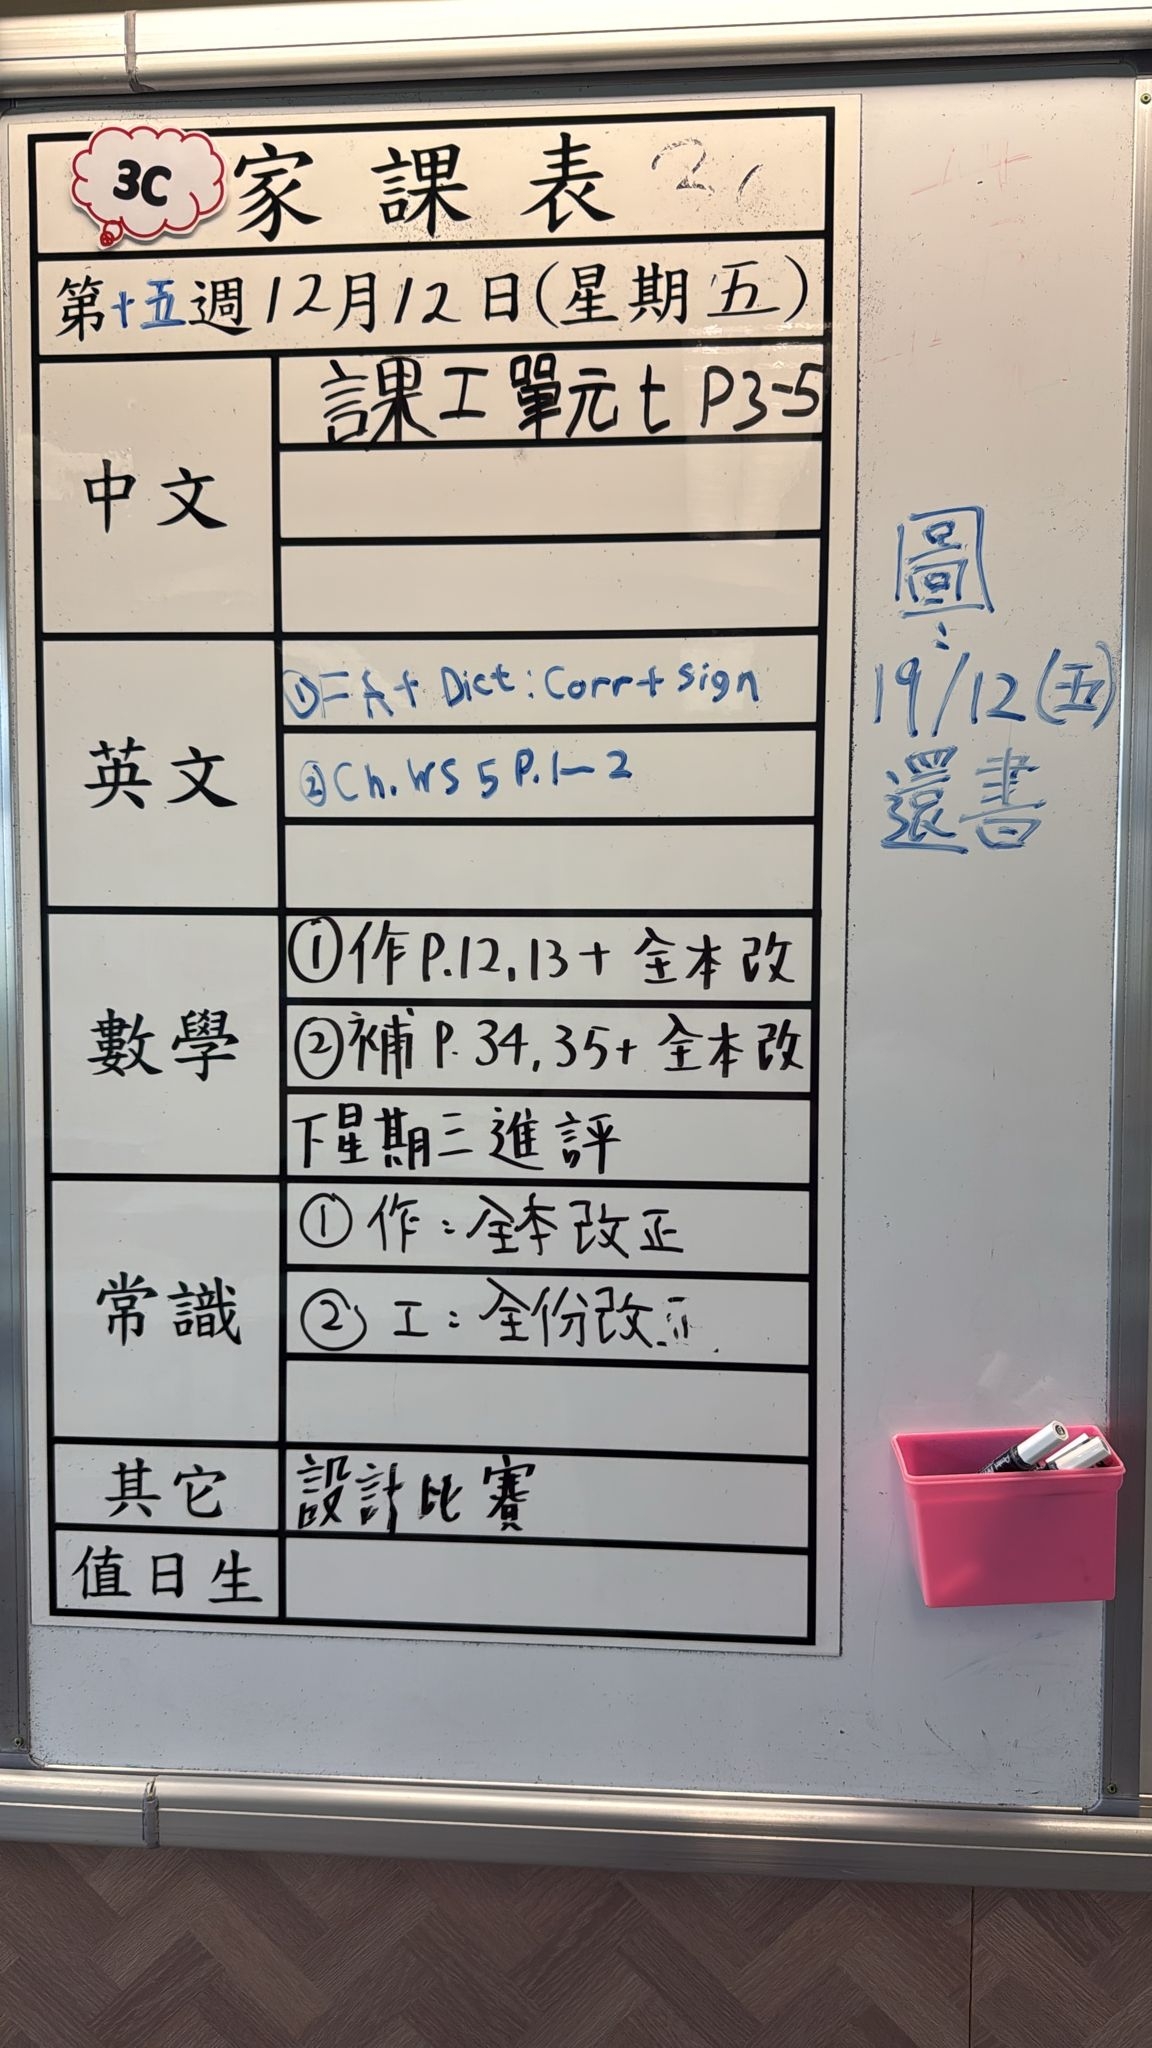 3C 家課表
第十五週12月12日(星期五)
中文
課工單元七 P3-5
英文
① FA + Dict: Corr + sign
② Ch. WS 5 P.1-2
數學
①作P.12,13+ 全本改
②補 P.34,35+ 全本改
下星期三進評
常識
① 作:全本改正
② 工:全份改正
其它
設計比賽
值日生
圖:
19/12(五)
還書